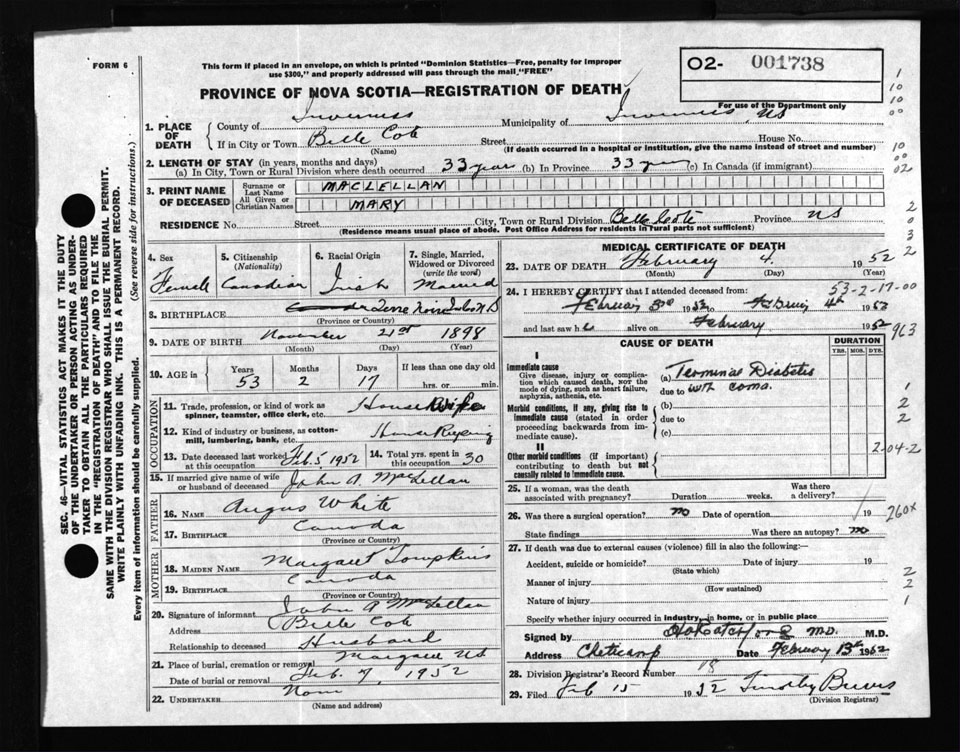 FORM 6
This form if placed in an envelope, on which is printed "Dominion Statistics—Free, penalty for improper
use $300," and properly addressed will pass through the mail "FREE"
O2- 001738
For use of the Department only
PROVINCE OF NOVA SCOTIA—REGISTRATION OF DEATH
1. PLACE OF DEATH
County of Inverness Municipality of Inverness, NS
If in City or Town Belle Cote Street House No.
(Name) (If death occurred in a hospital or institution, give the name instead of street and number)
2. LENGTH OF STAY (in years, months and days)
(a) In City, Town or Rural Division where death occurred 33 years (b) In Province 33 years (c) In Canada (if immigrant)
3. PRINT NAME OF DECEASED
Surname or Last Name MACLELLAN
All Given or Christian Names MARY
RESIDENCE No. Street City, Town or Rural Division Belle Cote Province NS
(Residence means usual place of abode. Post Office Address for residents in rural parts not sufficient)
4. Sex Female
5. Citizenship (Nationality) Canadian
6. Racial Origin Irish
7. Single, Married, Widowed or Divorced (write the word) Married
8. BIRTHPLACE
(Province or Country)
9. DATE OF BIRTH November 21st 1898
(Month) (Day) (Year)
10. AGE in Years 53 Months 2 Days 17 If less than one day old hrs. or min.
OCCUPATION
11. Trade, profession, or kind of work as spinner, teamster, office clerk, etc. House Wife
12. Kind of industry or business, as cotton-mill, lumbering, bank, etc. House Keeping
13. Date deceased last worked at this occupation Feb. 5 1952
14. Total yrs. spent in this occupation 30
15. If married give name of wife or husband of deceased John A. MacLellan
FATHER
16. NAME Angus White
17. BIRTHPLACE Canada
(Province or Country)
MOTHER
18. MAIDEN NAME Margaret Tompkins
19. BIRTHPLACE Canada
(Province or Country)
20. Signature of informant John A MacLellan
Address Belle Cote
Relationship to deceased Husband
21. Place of burial, cremation or removal Margaree NS
Date of burial or removal Feb. 7, 1952
22. UNDERTAKER None
(Name and address)
MEDICAL CERTIFICATE OF DEATH
23. DATE OF DEATH February 4. 1952
(Month) (Day)
24. I HEREBY CERTIFY that I attended deceased from:
53-2-17-00
February 3rd to February 4th
and last saw h alive on February 1952
963
CAUSE OF DEATH
DURATION
YRS. MOS. DYS.
I
Immediate cause
Give disease, injury or complication which caused death, not the mode of dying, such as heart failure, asphyxia, asthenia, etc.
(a) Terminal Diabetes
due to with coma.
Morbid conditions, if any, giving rise to immediate cause (stated in order proceeding backwards from immediate cause).
(b)
due to
(c)
II
Other morbid conditions (if important) contributing to death but not causally related to immediate cause.
2-04-2
25. If a woman, was the death associated with pregnancy? Duration weeks. Was there a delivery?
26. Was there a surgical operation? no Date of operation 19
260x
State findings Was there an autopsy? no
27. If death was due to external causes (violence) fill in also the following:—
Accident, suicide or homicide? Date of injury 19
(State which)
Manner of injury
(How sustained)
Nature of injury
Specify whether injury occurred in industry, in home, or in public place
Signed by M.D. M.D.
Address Cheticamp Date February 13th 1952
28. Division Registrar's Record Number 18
29. Filed Feb 15 1952 Timothy
(Division Registrar)
SEC. 46—VITAL STATISTICS ACT MAKES IT THE DUTY
OF THE UNDERTAKER OR PERSON ACTING AS UNDER-
TAKER TO OBTAIN ALL THE PARTICULARS REQUIRED
IN THE "REGISTRATION OF DEATH" AND TO FILE THE
SAME WITH THE DIVISION REGISTRAR WHO SHALL ISSUE THE BURIAL PERMIT.
WRITE PLAINLY WITH UNFADING INK. THIS IS A PERMANENT RECORD.
Every item of information should be carefully supplied. (See reverse side for instructions.)
1
10
10
00
10
00
02
2
0
3
2
1
2
2
2
2
1